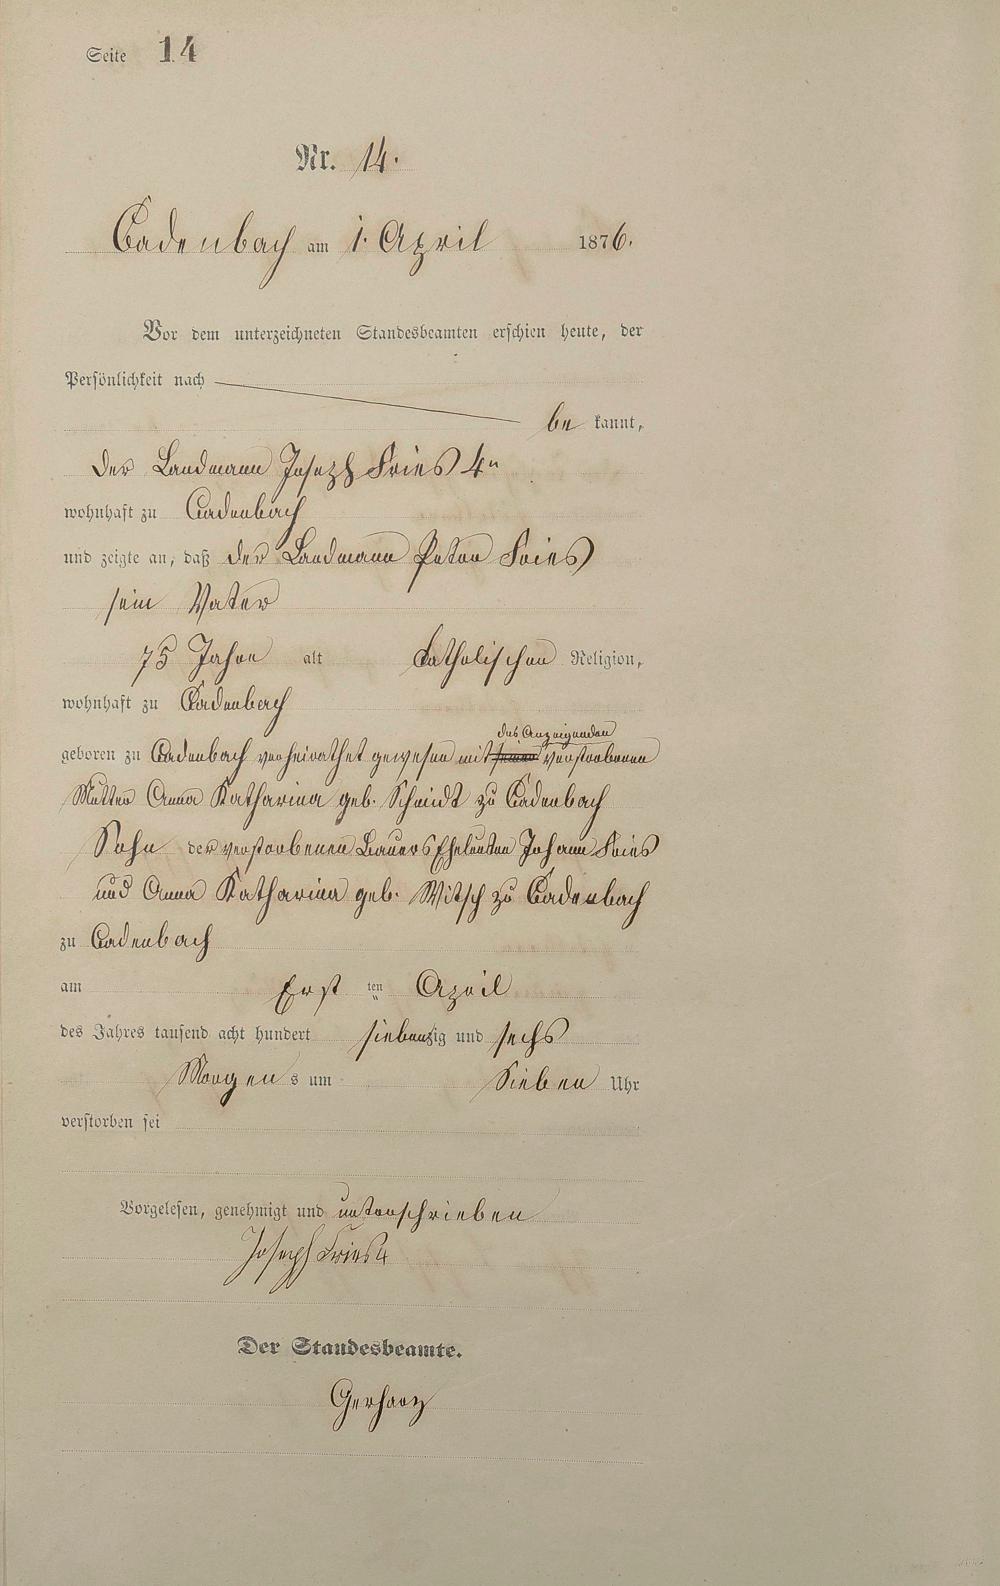 Seite 14
Nr. 14.
Cadenbach am 1. April 1876.
Vor dem unterzeichneten Standesbeamten erschien heute, der
Persönlichkeit nach
be kannt,
der Landmann Joseph Fries 4n
wohnhaft zu Cadenbach
und zeigte an, daß der Landmann Peter Fries
sein Vater
75 Jahre alt katholischen Religion,
wohnhaft zu Cadenbach
des Anzeigenden
geboren zu Cadenbach verheirathet gewesen mit verstorbenen
Mutter Anna Katharina geb. Schmidt zu Cadenbach
Sohn der verstorbenen Bauers Eheleuten Johann Fries
und Anna Katharina geb. Witsch zu Cadenbach
zu Cadenbach
am Erst ten April
des Jahres tausend acht hundert siebenzig und sechs
Morgens um Sieben Uhr
verstorben sei
Vorgelesen, genehmigt und unterschrieben
Joseph Fries 4
Der Standesbeamte.
Gerharz